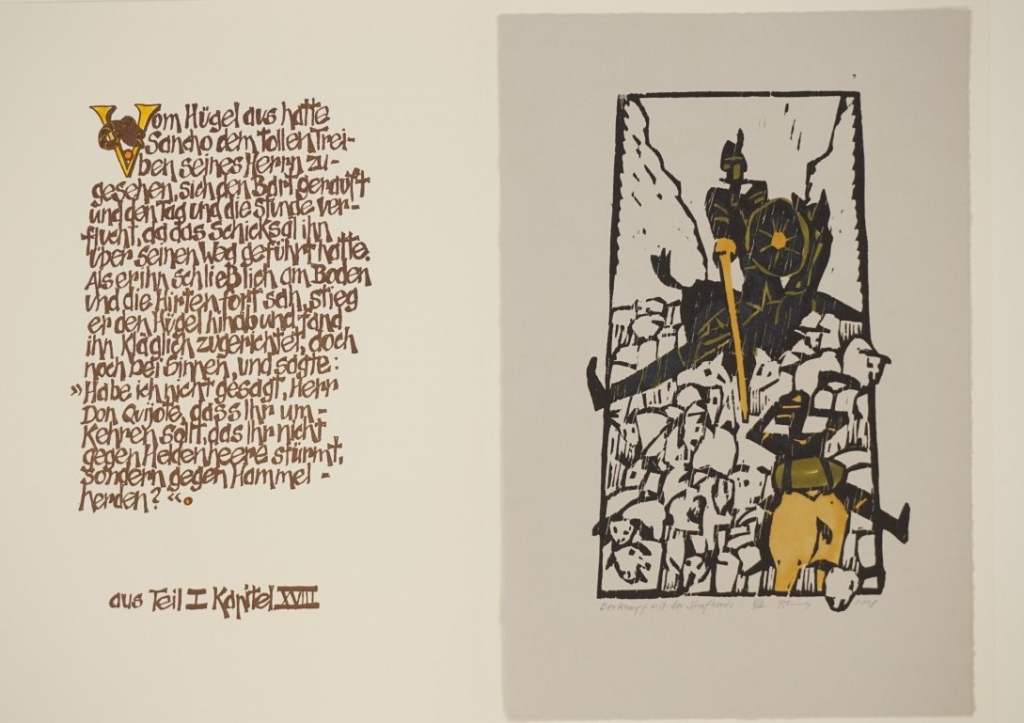 Vom Hügel aus hatte
Sancho dem tollen Trei-
ben seines Herrn zu-
gesehen, sich den Bart gerauft
und den Tag und die Stunde ver-
flucht, da das Schicksal ihn
über seinen Weg geführt hatte.
Als er ihn schließlich am Boden
und die Hirten fort sah, stieg
er den Hügel hinab und fand
ihn kläglich zugerichtet, doch
noch bei Sinnen, und sagte:
»Habe ich nicht gesagt, Herr
Don Quijote, dass Ihr um-
kehren sollt, das Ihr nicht
gegen Heldenheere stürmt,
sondern gegen Hammel-
herden?«.
aus Teil I Kapitel XVIII
Der Kampf mit der